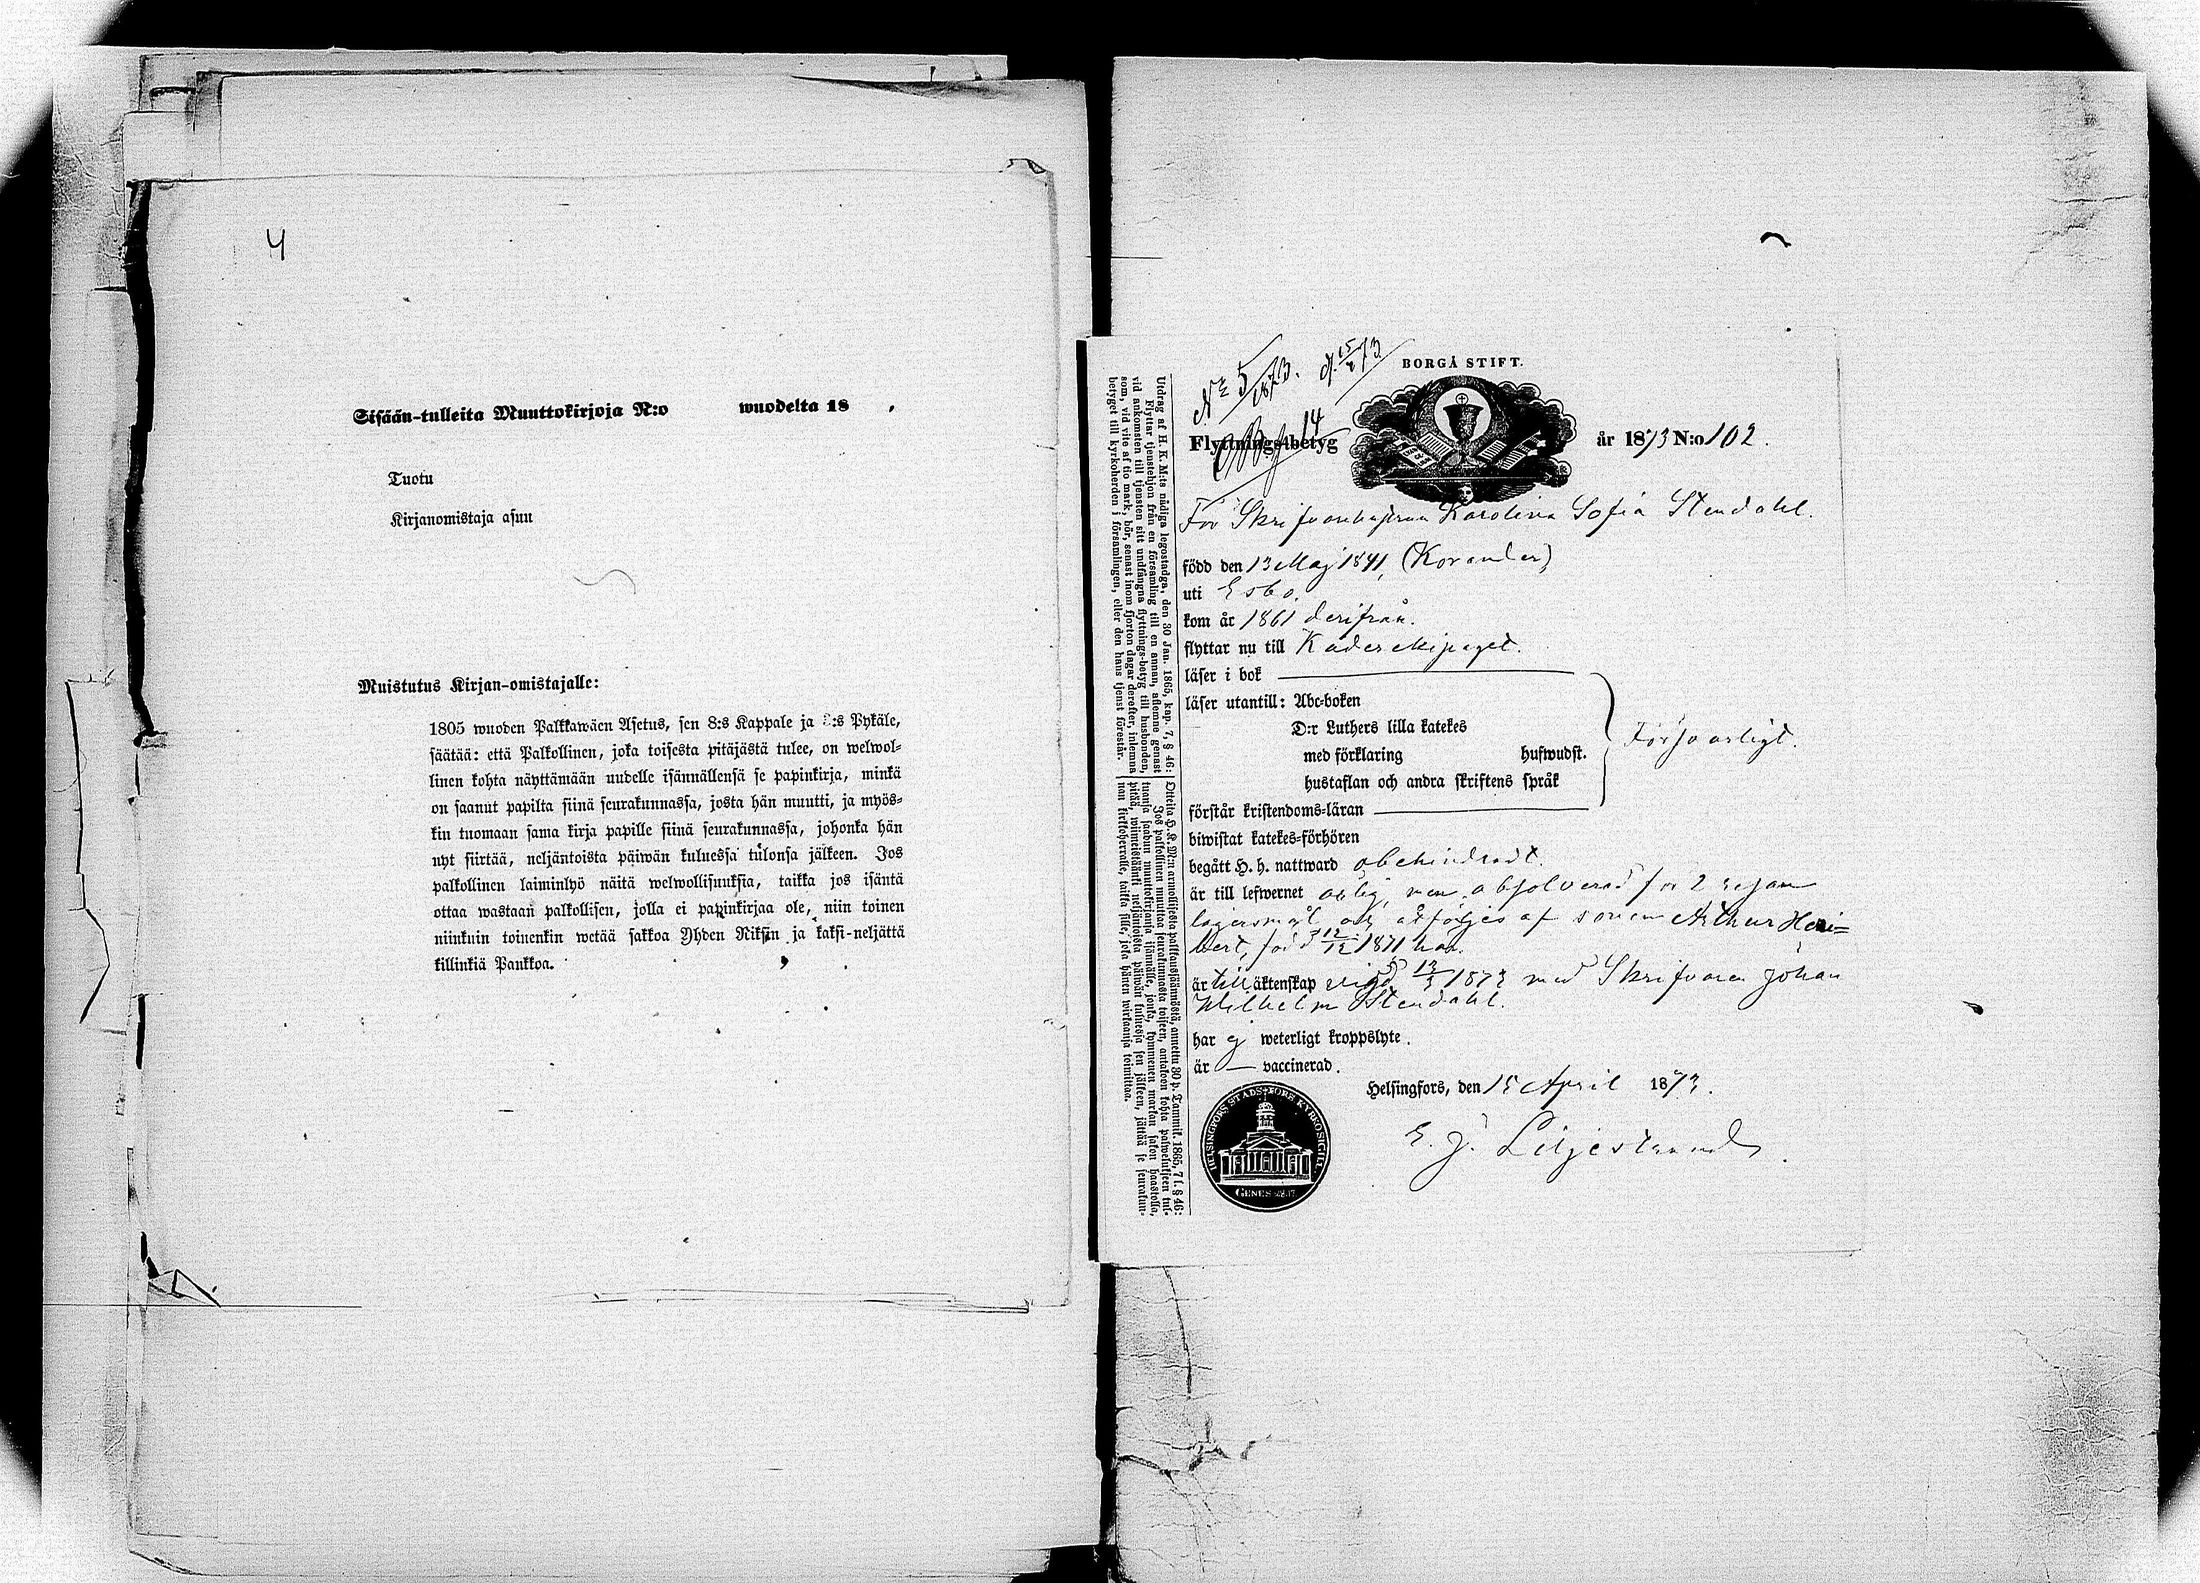 4
Sisään-tulleita Muuttokirjoja N:o wuodelta 18 .
Tuotu
Kirjanomistaja asuu
Muistutus Kirjan-omistajalle:
1805 wuoden Palkkawäen Asetus, sen 8:s Kappale ja 3:s Pykäle,
säätää: että Palkollinen, joka toisesta pitäjästä tulee, on welwol-
linen kohta näyttämään uudelle isännällensä se papinkirja, minkä
on saanut papilta siinä seurakunnassa, josta hän muutti, ja myös-
kin tuomaan sama kirja papille siinä seurakunnassa, johonka hän
nyt siirtää, neljäntoista päiwän kuluessa tulonsa jälkeen. Jos
palkollinen laiminlyö näitä welwollisuuksia, taikka jos isäntä
ottaa wastaan palkollisen, jolla ei papinkirjaa ole, niin toinen
niinkuin toinenkin wetää sakkoa Yhden Riksin ja kaksi-neljättä
killinkiä Pankkoa.
Utdrag af H. K. M:ts nådiga legostadga, den 30 Jan. 1865, kap. 7, § 46:
Flyttar tjenstehjon från en församling till en annan, aflemne genast
vid ankomsten till tjensten sitt undfångna flyttnings-betyg till husbonden,
som, vid vite af tio mark, bör, senast inom fjorton dagar derefter, inlemna
betyget till kyrkoherden i församlingen, eller den hans tjenst förestår.
Otteita H. K. M:n armollisesta palkkaussäännöstä, annettu 30 p. Tammik. 1865, 7 l. § 46:
Jos palkollinen muuttaa seurakunnasta toiseen, antakoon kohta palwelukseen tul-
tuansa saadun muuttokirjansa isännälle, jonka, kymmenen markan sakon haastolla,
pitää, wiimeistäänki neljäntoista päiwän kuluessa sen jälkeen, jättää se seurakun-
nan kirkkoherralle, taikka sille, joka hänen wirkaansa toimittaa.
N:o 5/1873. d. 15/4 73
BORGÅ STIFT.
14
Flyttnings-betyg år 1873 N:o 102.
För Skrifvarehustrun Karolina Sofia Stendahl.
född den 13 Maj 1841, (Korander)
uti Esbo.
kom år 1861 derifrån.
flyttar nu till Kaderekipaget.
läser i bok
läser utantill: Abc-boken
D:r Luthers lilla katekes
med förklaring hufwudst. Försvarligt.
hustaflan och andra skriftens språk
förstår kristendoms-läran
biwistat katekes-förhören
begått H. h. nattward obehindradt.
är till lefwernet ärlig, men absolverad för 2 resor
lägersmål och åtföljes af sonen Arthur Heri=
bert, född 12/12 1871 har.
är till äktenskap vigd 13/3 1873 med Skrifvaren Johan
Wilhelm Stendahl.
har ej weterligt kroppslyte.
är — vaccinerad.
Helsingfors, den 15 April 1873.
E. J. Liljestrand.
HELSINGFORS STADS FÖRE KYRKOSIGILL.
GENES. 28.17.